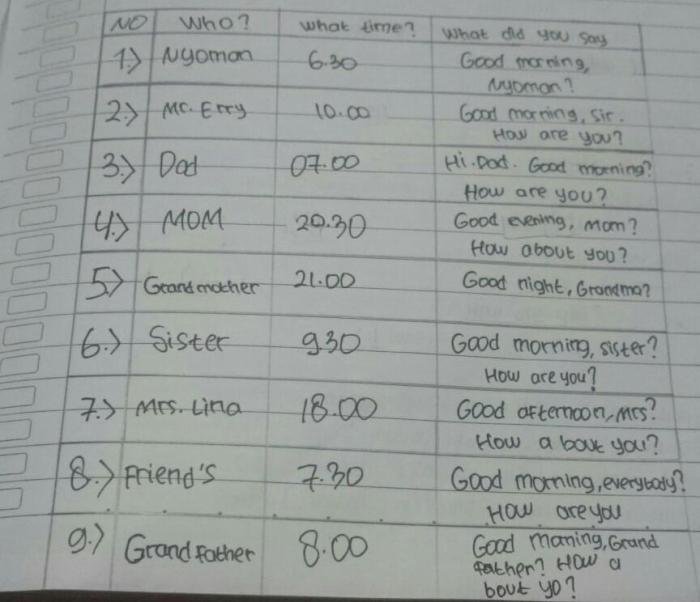 NO Who? What time? What did you say
1.) Nyoman 6.30 Good morning,
Nyoman?
2.) Mr. Erry 10.00 Good morning, Sir.
How are you?
3.) Dad 07.00 Hi. Dad. Good morning?
How are you?
4.) MOM 20.30 Good evening, Mom?
How about you?
5.) Grandmother 21.00 Good night, Grandma?
6.) Sister 930 Good morning, sister?
How are you?
7.) Mrs. Lina 18.00 Good afternoon, Mrs?
How a bout you?
8.) Friend's 7.30 Good morning, everybody?
How are you
9.) Grand father 8.00 Good morning, Grand
father? How a
bout yo?